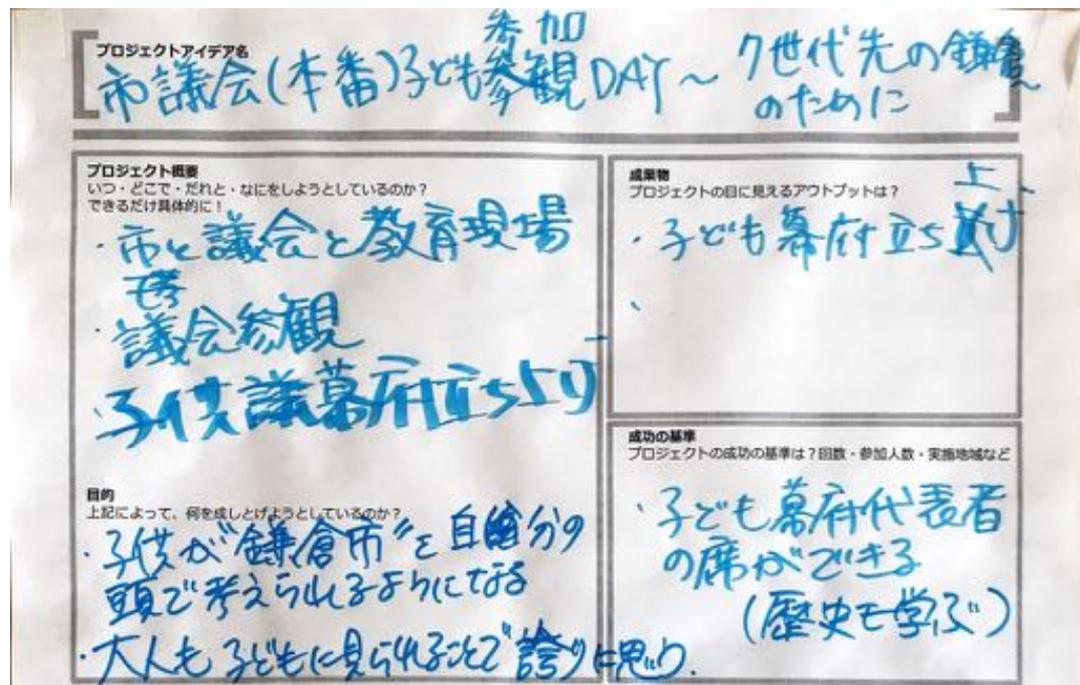 プロジェクトアイデア名
参加
市議会(本番)子ども参観DAY~ 7世代先の鎌倉
のために
プロジェクト概要
いつ・どこで・だれと・なにをしようとしているのか?
できるだけ具体的に!
・市と議会と教育現場
・議会参観
・子供議幕府立ち上げ
目的
上記によって、何を成しとげようとしているのか?
・子供が“鎌倉市”を自分の
頭で考えられるようになる
・大人も子どもに見られることで誇りに思い
成果物
プロジェクトの目に見えるアウトプットは?
上
・子ども幕府立ち げ
成功の基準
プロジェクトの成功の基準は?回数・参加人数・実施地域など
・子ども幕府代表者
の席ができる
(歴史を学ぶ)